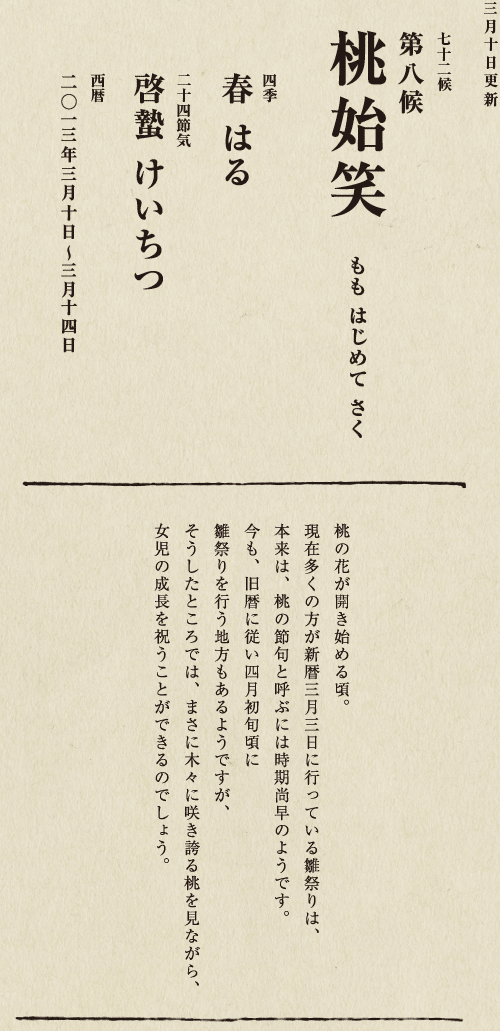 三月十日更新
七十二候
第八候
桃始笑
もも はじめて さく
四季
春 はる
二十四節気
啓蟄 けいちつ
西暦
二〇一三年三月十日〜三月十四日
桃の花が開き始める頃。
現在多くの方が新暦三月三日に行っている雛祭りは、
本来は、桃の節句と呼ぶには時期尚早のようです。
今も、旧暦に従い四月初旬頃に
雛祭りを行う地方もあるようですが、
そうしたところでは、まさに木々に咲き誇る桃を見ながら、
女児の成長を祝うことができるのでしょう。